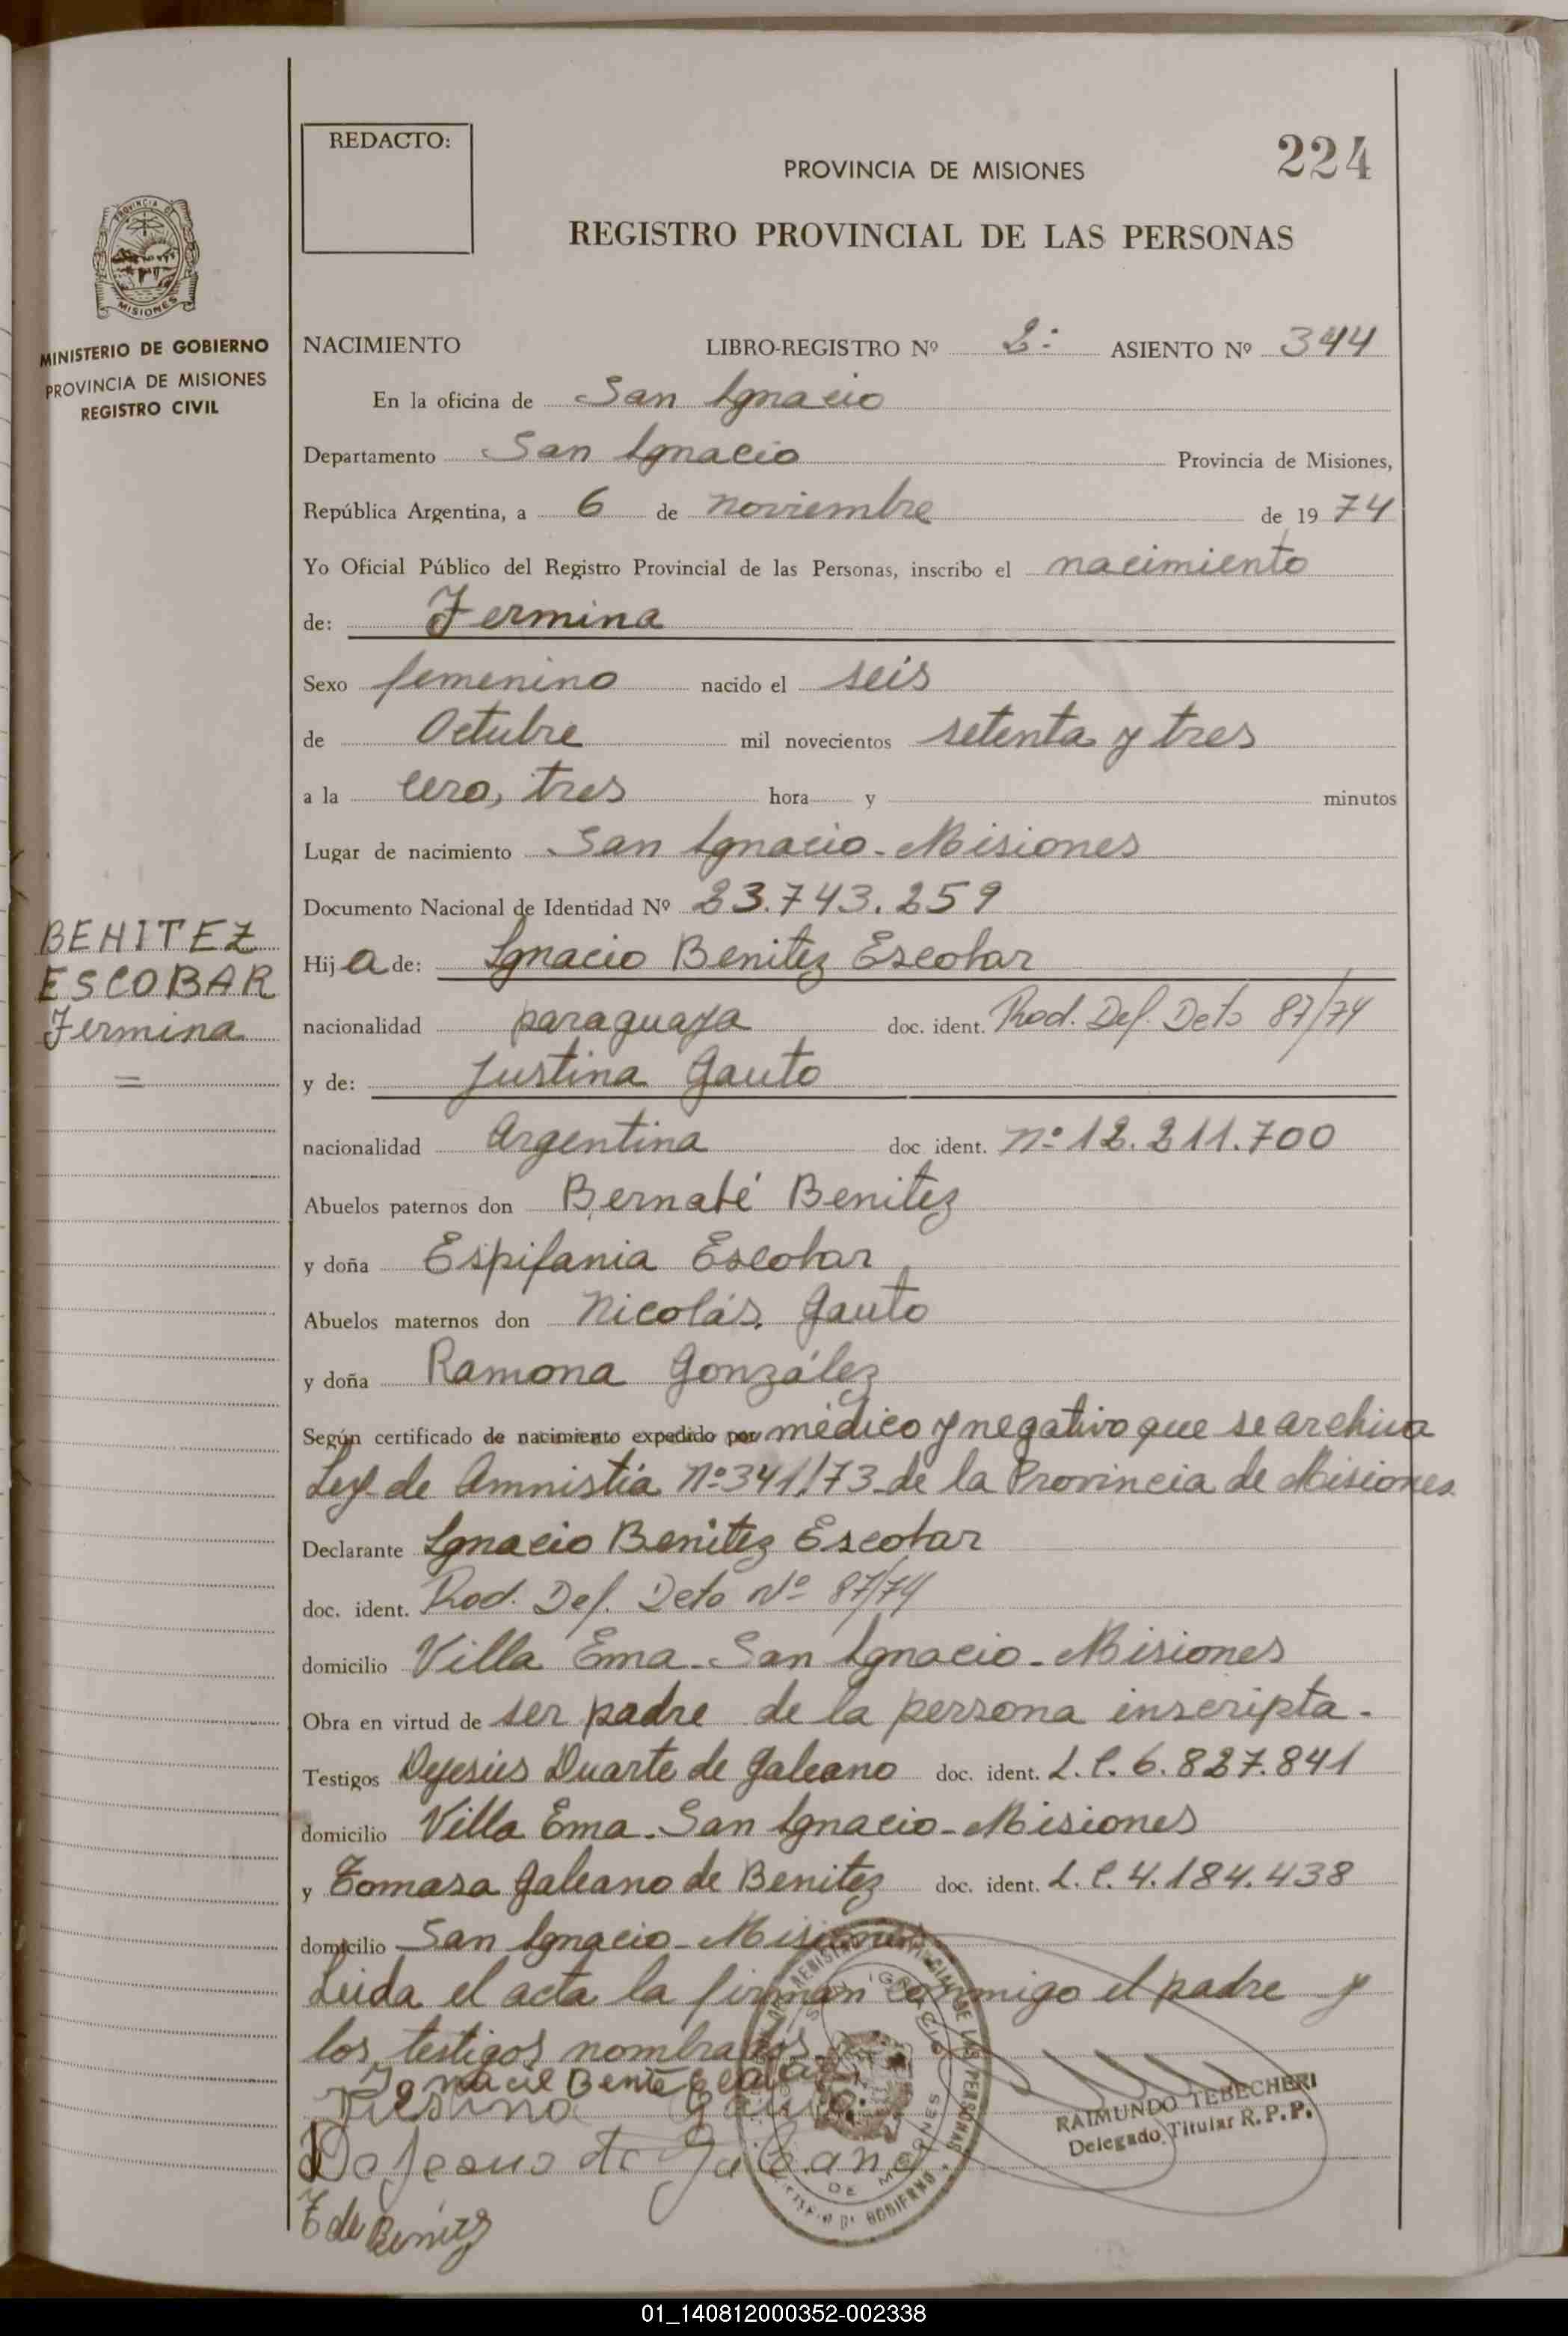 REDACTO:
224
PROVINCIA DE MISIONES
REGISTRO PROVINCIAL DE LAS PERSONAS
PROVINCIA DE
MISIONES
MINISTERIO DE GOBIERNO
PROVINCIA DE MISIONES
REGISTRO CIVIL
NACIMIENTO LIBRO-REGISTRO Nº 2º ASIENTO Nº 344
En la oficina de San Ignacio
Departamento San Ignacio Provincia de Misiones,
República Argentina, a 6 de noviembre de 19 74
Yo Oficial Público del Registro Provincial de las Personas, inscribo el nacimiento
de: Fermina
Sexo femenino nacido el seis
de Octubre mil novecientos setenta y tres
a la cero, tres hora y minutos
Lugar de nacimiento San Ignacio - Misiones
Documento Nacional de Identidad Nº 23.743.259
BENITEZ
ESCOBAR
Fermina
=
Hij a de: Ignacio Benitez Escobar
nacionalidad paraguaya doc. ident. Rod. Def. Deto 87/74
y de: Justina Gauto
nacionalidad Argentina doc ident. nº 12.211.700
Abuelos paternos don Bernabé Benitez
y doña Espifania Escobar
Abuelos maternos don Nicolás Gauto
y doña Ramona González
Según certificado de nacimiento expedido por médico y negativo que se archiva
Ley de Amnistia Nº 341/73 de la Provincia de Misiones
Declarante Ignacio Benitez Escobar
doc. ident. Rod. Def. Deto Nº 87/74
domicilio Villa Ema - San Ignacio - Misiones
Obra en virtud de ser padre de la persona inscripta.
Testigos Dejesús Duarte de Galeano doc. ident. L.C. 6.827.841
domicilio Villa Ema - San Ignacio - Misiones
y Tomasa Galeano de Benitez doc. ident. L.C. 4.184.438
domicilio San Ignacio - Misiones
Leida el acta la firman conmigo el padre y
los testigos nombrados.
Justina Gauto
de Galeano
T de Benitez
RAIMUNDO TEBECHERI
Delegado Titular R.P.P.
01_140812000352-002338